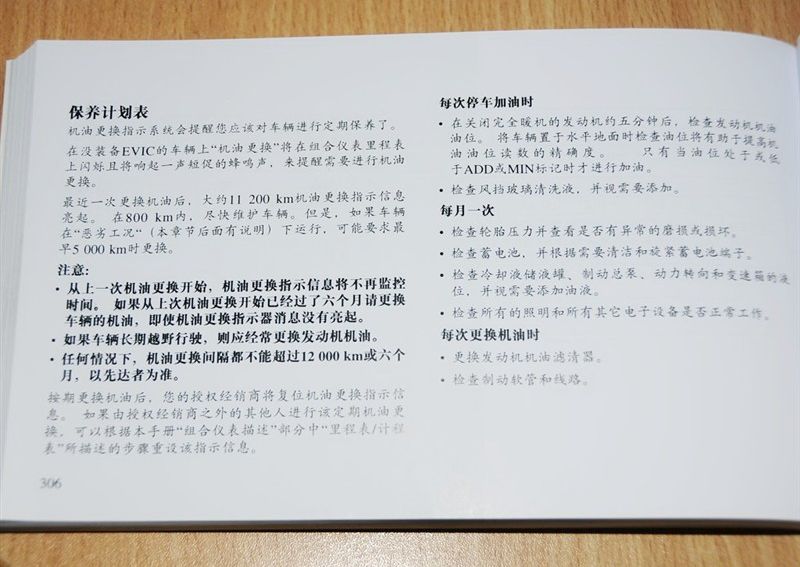 保养计划表
机油更换指示系统会提醒您应该对车辆进行定期保养了。
在没装备EVIC的车辆上“机油更换”将在组合仪表里程表
上闪烁且将响起一声短促的蜂鸣声，来提醒需要进行机油
更换。
最近一次更换机油后，大约11 200 km机油更换指示信息
亮起。 在800 km内，尽快维护车辆。但是，如果车辆
在“恶劣工况“（本章节后面有说明）下运行，可能要求最
早5 000 km时更换。
注意:
• 从上一次机油更换开始，机油更换指示信息将不再监控
时间。 如果从上次机油更换开始已经过了六个月请更换
车辆的机油，即使机油更换指示器消息没有亮起。
• 如果车辆长期越野行驶，则应经常更换发动机机油。
• 任何情况下，机油更换间隔都不能超过12 000 km或六个
月，以先达者为准。
按期更换机油后，您的授权经销商将复位机油更换指示信
息。 如果由授权经销商之外的其他人进行该定期机油更
换，可以根据本手册“组合仪表描述”部分中“里程表/计程
表”所描述的步骤重设该指示信息。
306
每次停车加油时
• 在关闭完全暖机的发动机约五分钟后，检查发动机机油
油位。 将车辆置于水平地面时检查油位将有助于提高机
油油位读数的精确度。 只有当油位处于或低
于ADD或MIN标记时才进行加油。
• 检查风挡玻璃清洗液，并视需要添加。
每月一次
• 检查轮胎压力并查看是否有异常的磨损或损坏。
• 检查蓄电池，并根据需要清洁和旋紧蓄电池端子。
• 检查冷却液储液罐、制动总泵、动力转向和变速箱的液
位，并视需要添加油液。
• 检查所有的照明和所有其它电子设备是否正常工作。
每次更换机油时
• 更换发动机机油滤清器。
• 检查制动软管和线路。